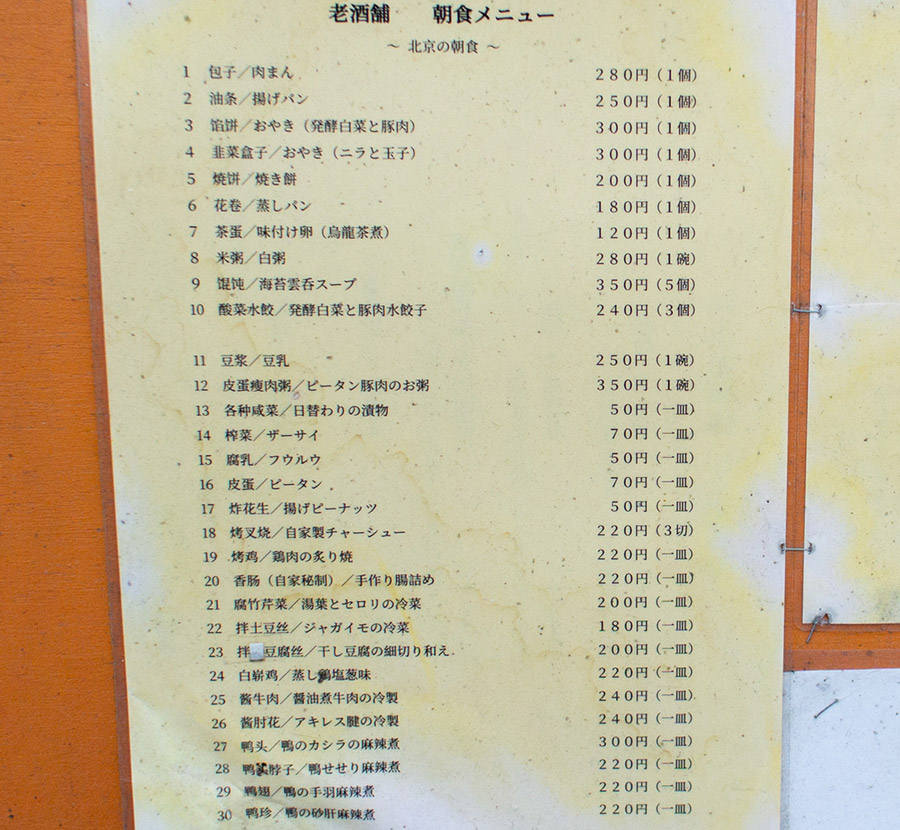 老酒舗　朝食メニュー
～ 北京の朝食 ～
1 包子／肉まん 280円（1個）
2 油条／揚げパン 250円（1個）
3 馅饼／おやき（発酵白菜と豚肉） 300円（1個）
4 韭菜盒子／おやき（ニラと玉子） 300円（1個）
5 焼饼／焼き餅 200円（1個）
6 花卷／蒸しパン 180円（1個）
7 茶蛋／味付け卵（烏龍茶煮） 120円（1個）
8 米粥／白粥 280円（1碗）
9 馄饨／海苔雲呑スープ 350円（5個）
10 酸菜水餃／発酵白菜と豚肉水餃子 240円（3個）
11 豆浆／豆乳 250円（1碗）
12 皮蛋瘦肉粥／ピータン豚肉のお粥 350円（1碗）
13 各种咸菜／日替わりの漬物 50円（一皿）
14 榨菜／ザーサイ 70円（一皿）
15 腐乳／フウルウ 50円（一皿）
16 皮蛋／ピータン 70円（一皿）
17 炸花生／揚げピーナッツ 50円（一皿）
18 烤叉烧／自家製チャーシュー 220円（3切）
19 烤鸡／鶏肉の炙り焼 220円（一皿）
20 香肠（自家秘制）／手作り腸詰め 220円（一皿）
21 腐竹芹菜／湯葉とセロリの冷菜 200円（一皿）
22 拌土豆丝／ジャガイモの冷菜 180円（一皿）
23 拌豆腐丝／干し豆腐の細切り和え 200円（一皿）
24 白崭鸡／蒸し鶏塩葱味 220円（一皿）
25 酱牛肉／醤油煮牛肉の冷製 240円（一皿）
26 酱肘花／アキレス腱の冷製 240円（一皿）
27 鸭头／鴨のカシラの麻辣煮 300円（一皿）
28 鸭脖子／鴨せせり麻辣煮 220円（一皿）
29 鸭翅／鴨の手羽麻辣煮 220円（一皿）
30 鸭珍／鴨の砂肝麻辣煮 220円（一皿）